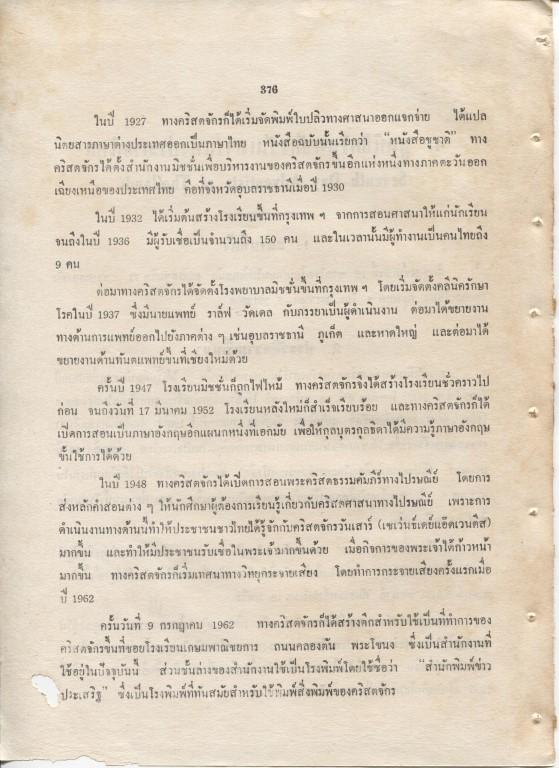 376
ในปี 1927 ทางคริสตจักรก็ได้เริ่มจัดพิมพ์ใบปลิวทางศาสนาออกแจกจ่าย ได้แปล
นิตยสารภาษาต่างประเทศออกเป็นภาษาไทย หนังสือฉบับนั้นเรียกว่า “หนังสือชูชาติ” ทาง
คริสตจักรได้ตั้งสำนักงานมิชชั่นเพื่อบริหารงานของคริสตจักรขึ้นอีกแห่งหนึ่งทางภาคตะวันออก
เฉียงเหนือของประเทศไทย คือที่จังหวัดอุบลราชธานีเมื่อปี 1930
ในปี 1932 ได้เริ่มต้นสร้างโรงเรียนขึ้นที่กรุงเทพ ฯ จากการสอนศาสนาให้แก่นักเรียน
จนถึงในปี 1936 มีผู้รับเชื่อเป็นจำนวนถึง 150 คน และในเวลานั้นมีผู้ทำงานเป็นคนไทยถึง
9 คน
ต่อมาทางคริสตจักรได้จัดตั้งโรงพยาบาลมิชชั่นขึ้นที่กรุงเทพ ฯ โดยเริ่มจัดตั้งคลีนิครักษา
โรคในปี 1937 ซึ่งมีนายแพทย์ ราล์ฟ วัดเดล กับภรรยาเป็นผู้ดำเนินงาน ต่อมาได้ขยายงาน
ทางด้านการแพทย์ออกไปยังภาคต่าง ๆ เช่นอุบลราชธานี ภูเก็ต และหาดใหญ่ และต่อมาได้
ขยายงานด้านทันตแพทย์ขึ้นที่เชียงใหม่ด้วย
ครั้นปี 1947 โรงเรียนมิชชั่นก็ถูกไฟไหม้ ทางคริสตจักรจึงได้สร้างโรงเรียนชั่วคราวไป
ก่อน จนถึงวันที่ 17 มีนาคม 1952 โรงเรียนหลังใหม่ก็สำเร็จเรียบร้อย และทางคริสตจักรก็ได้
เปิดการสอนเป็นภาษาอังกฤษอีกแผนกหนึ่งที่เอกมัย เพื่อให้กุลบุตรกุลธิดาได้มีความรู้ภาษาอังกฤษ
ขั้นใช้การได้ด้วย
ในปี 1948 ทางคริสตจักรได้เปิดการสอนพระคริสตธรรมคัมภีร์ทางไปรษณีย์ โดยการ
ส่งหลักคำสอนต่าง ๆ ให้นักศึกษาผู้ต้องการเรียนรู้เกี่ยวกับคริสตศาสนาทางไปรษณีย์ เพราะการ
ดำเนินงานทางด้านนี้ทำให้ประชาชนชาวไทยได้รู้จักกับคริสตจักรวันเสาร์ (เซเว่นธ์เดย์แอ๊ดเวนตีส)
มากขึ้น และทำให้มีประชาชนรับเชื่อในพระเจ้ามากขึ้นด้วย เมื่อกิจการของพระเจ้าได้ก้าวหน้า
มากขึ้น ทางคริสตจักรก็เริ่มเทศนาทางวิทยุกระจายเสียง โดยทำการกระจายเสียงครั้งแรกเมื่อ
ปี 1962
ครั้นวันที่ 9 กรกฎาคม 1962 ทางคริสตจักรก็ได้สร้างตึกสำหรับใช้เป็นที่ทำการของ
คริสตจักรขึ้นที่ซอยโรงเรียนเกษมพาณิชยการ ถนนคลองตัน พระโขนง ซึ่งเป็นสำนักงานที่
ใช้อยู่ในปัจจุบันนี้ ส่วนชั้นล่างของสำนักงานใช้เป็นโรงพิมพ์โดยใช้ชื่อว่า “สำนักพิมพ์ข่าว
ประเสริฐ” ซึ่งเป็นโรงพิมพ์ที่ทันสมัยสำหรับใช้พิมพ์สิ่งพิมพ์ของคริสตจักร